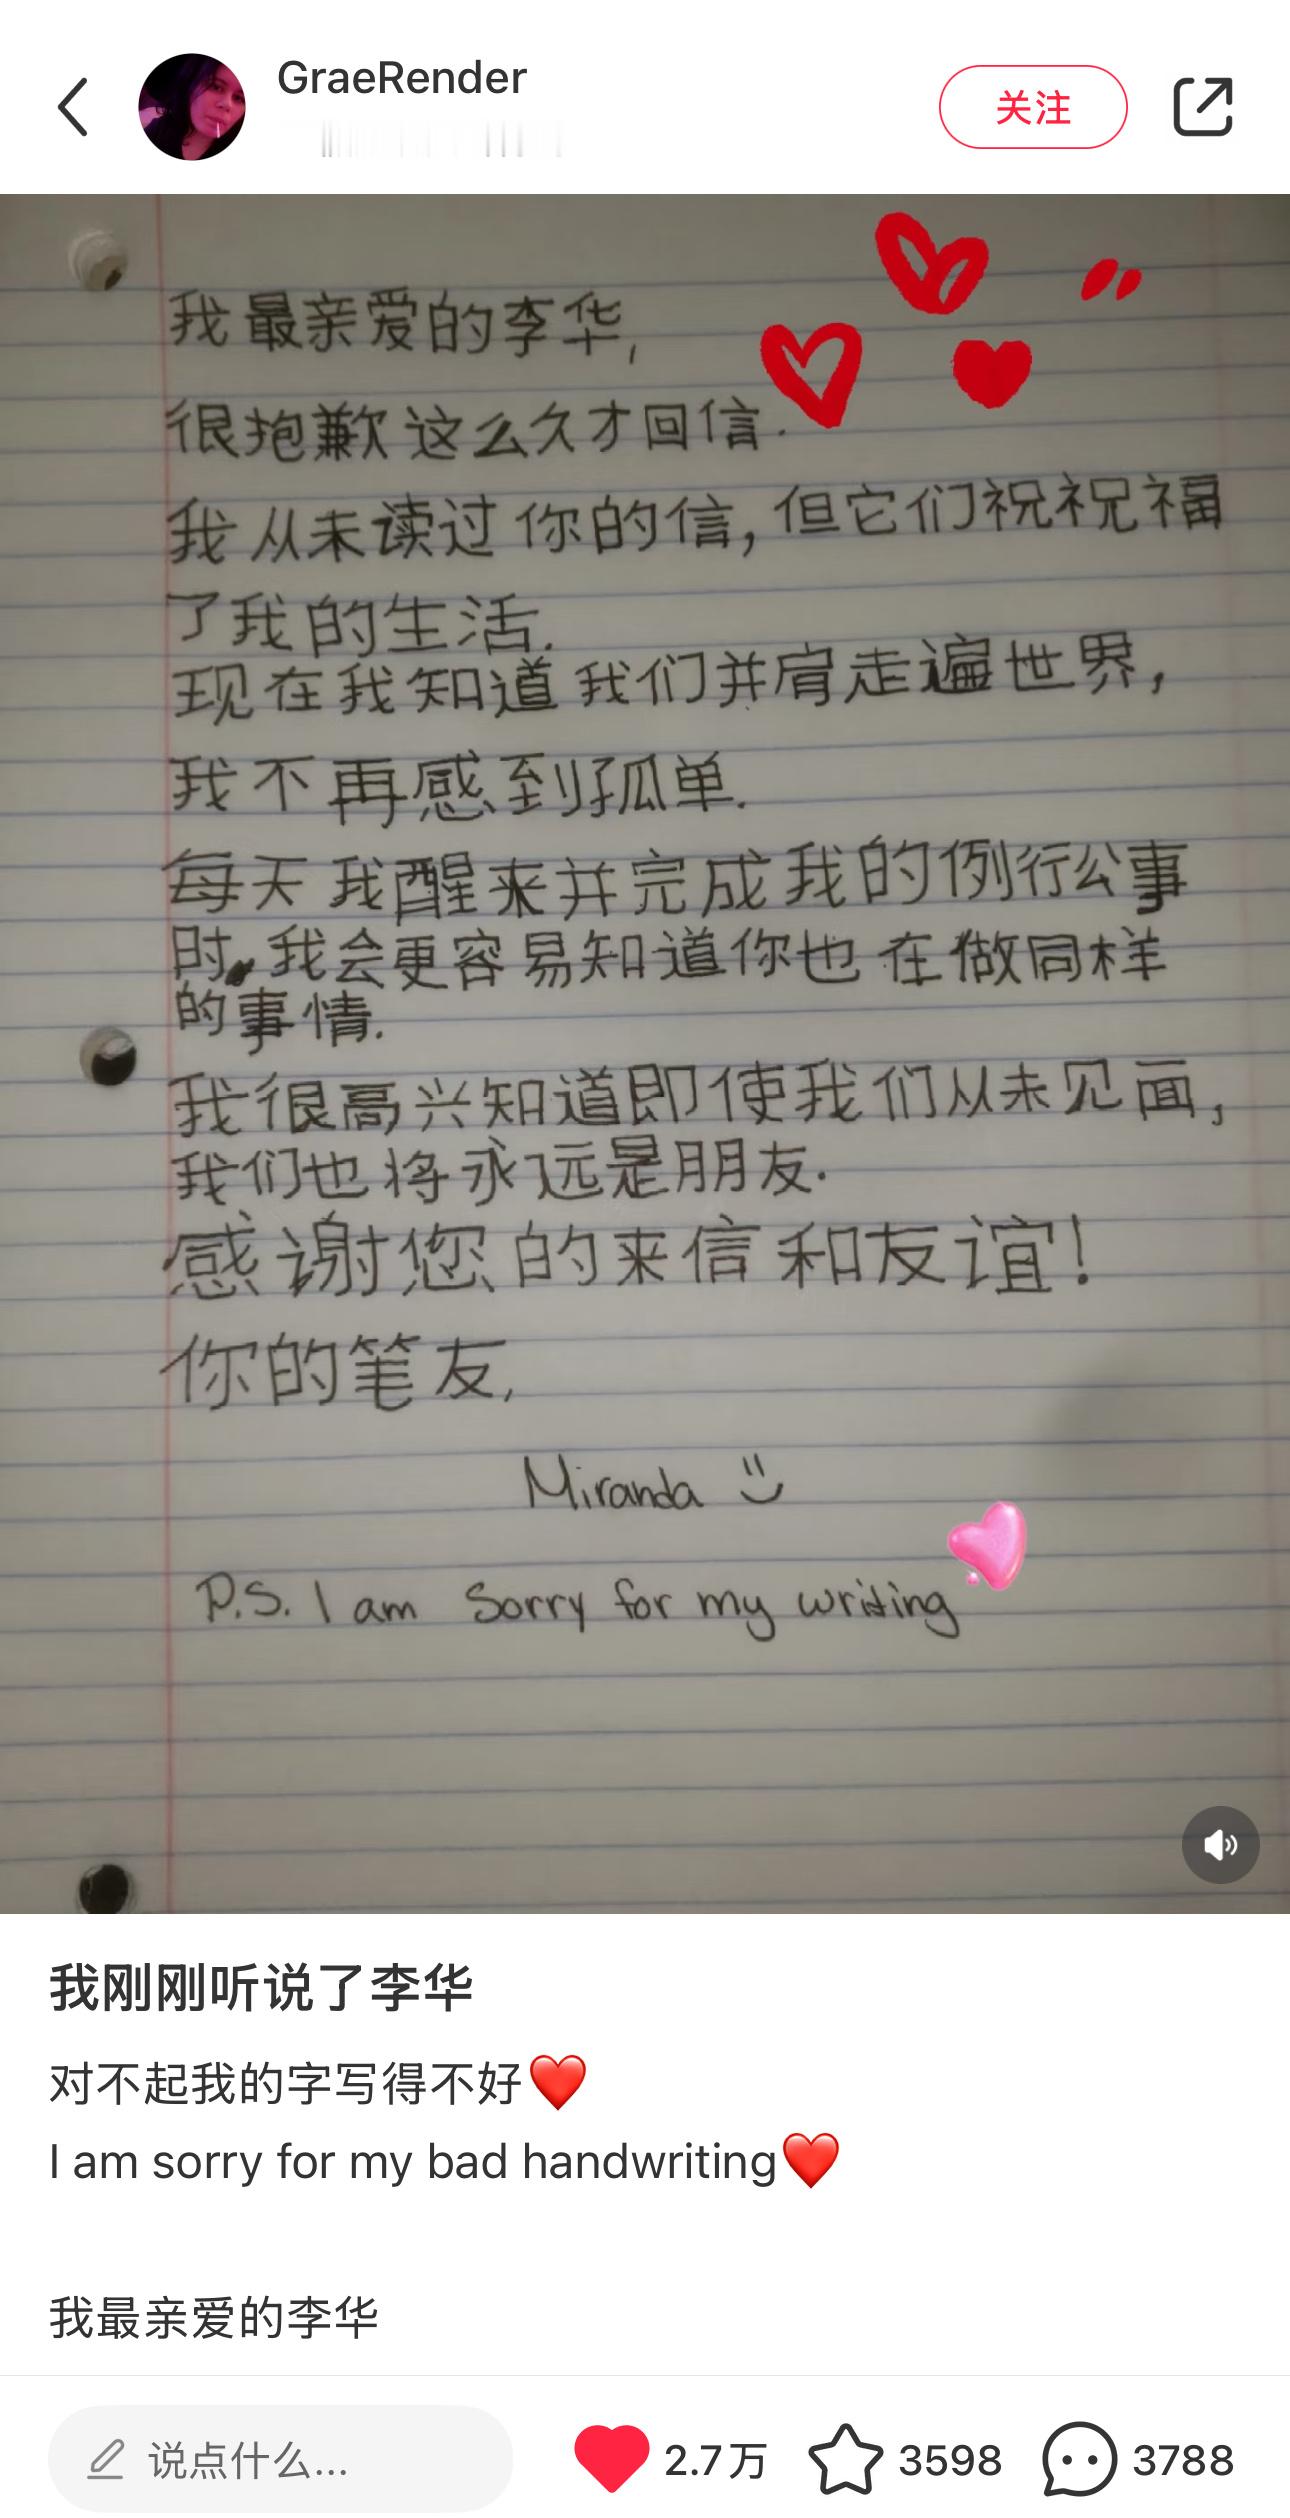 GraeRender
关注
我最亲爱的李华,
很抱歉这么久才回信.
我从未读过你的信,但它们祝祝福
了我的生活.
现在我知道我们并肩走遍世界,
我不再感到孤单.
每天我醒来并完成我的例行公事
时,我会更容易知道你也在做同样
的事情.
我很高兴知道即使我们从未见面,
我们也将永远是朋友.
感谢您的来信和友谊!
你的笔友,
Miranda
P.S. I am Sorry for my writing
我刚刚听说了李华
对不起我的字写得不好❤️
I am sorry for my bad handwriting❤️
我最亲爱的李华
说点什么...
2.7万
3598
3788